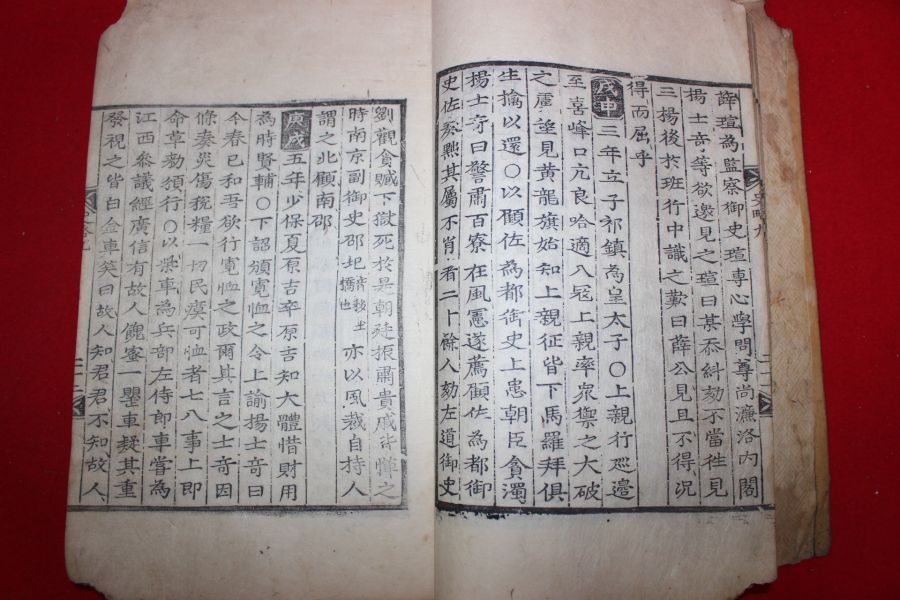 薛瑄為監察御史瑄專心學問尊尚濂洛內閣
揚士奇等欲邀見之瑄曰某忝糾劾不當徃見
三揚後於班行中識之歎曰薛公見且不得況
得而屈乎
戊申 三年立子祁鎮為皇太子〇上親行巡邊
至喜峰口亢良哈適入冦上親率衆禦之大破
之虜望見黃龍旗始知上親征皆下馬羅拜俱
生擒以還〇以顧佐為都御史上患朝臣貪濁
揚士奇曰警肅百寮在風憲遂薦顧佐為都御
史佐奏黜其屬不肖者二十餘人劾左道御史
劉觀貪贓下獄死於是朝廷振肅貴戚皆憚之
時南京副御史邵玘 亦以風裁自持人
謂之北顧南邵
庚戌 五年少保夏原吉卒原吉知大體惜財用
為時賢輔〇下詔頒寬恤之令上諭揚士奇曰
今春已和吾欲行寬恤之政爾其言之士奇因
條奏災傷稅糧一切民瘼可恤者七八事上即
命草勑頒行〇以柴車為兵部左侍郎車嘗為
江西叅議經廣信有故人餽蜜一甖車疑其重
發視之皆白金車笑曰故人知君君不知故人